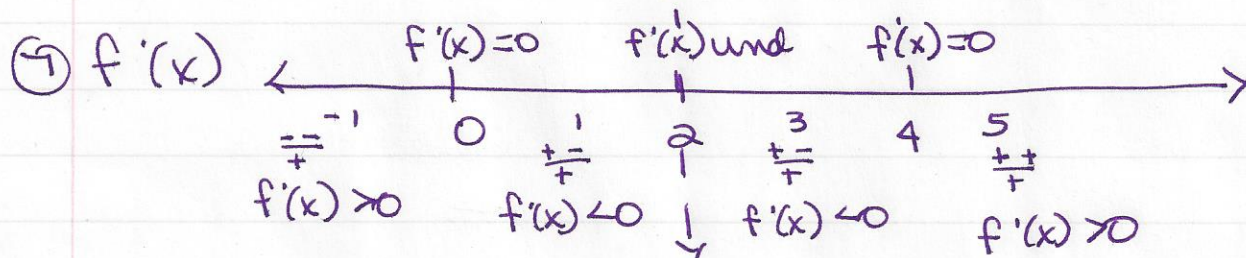 ④ f'(x) f'(x)=0 f'(x) und f'(x)=0
-1 0 1 2 3 4 5
- - / + + - / + + - / + + + / +
f'(x) >0 f'(x) <0 f'(x) <0 f'(x) >0